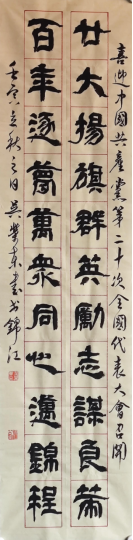 喜迎中国共產黨第二十次全國代表大會召開
廿大揚旗群英勵志謀良策
百年逐夢萬衆同心邁錦程
壬寅立秋之日吳學東書於錦江